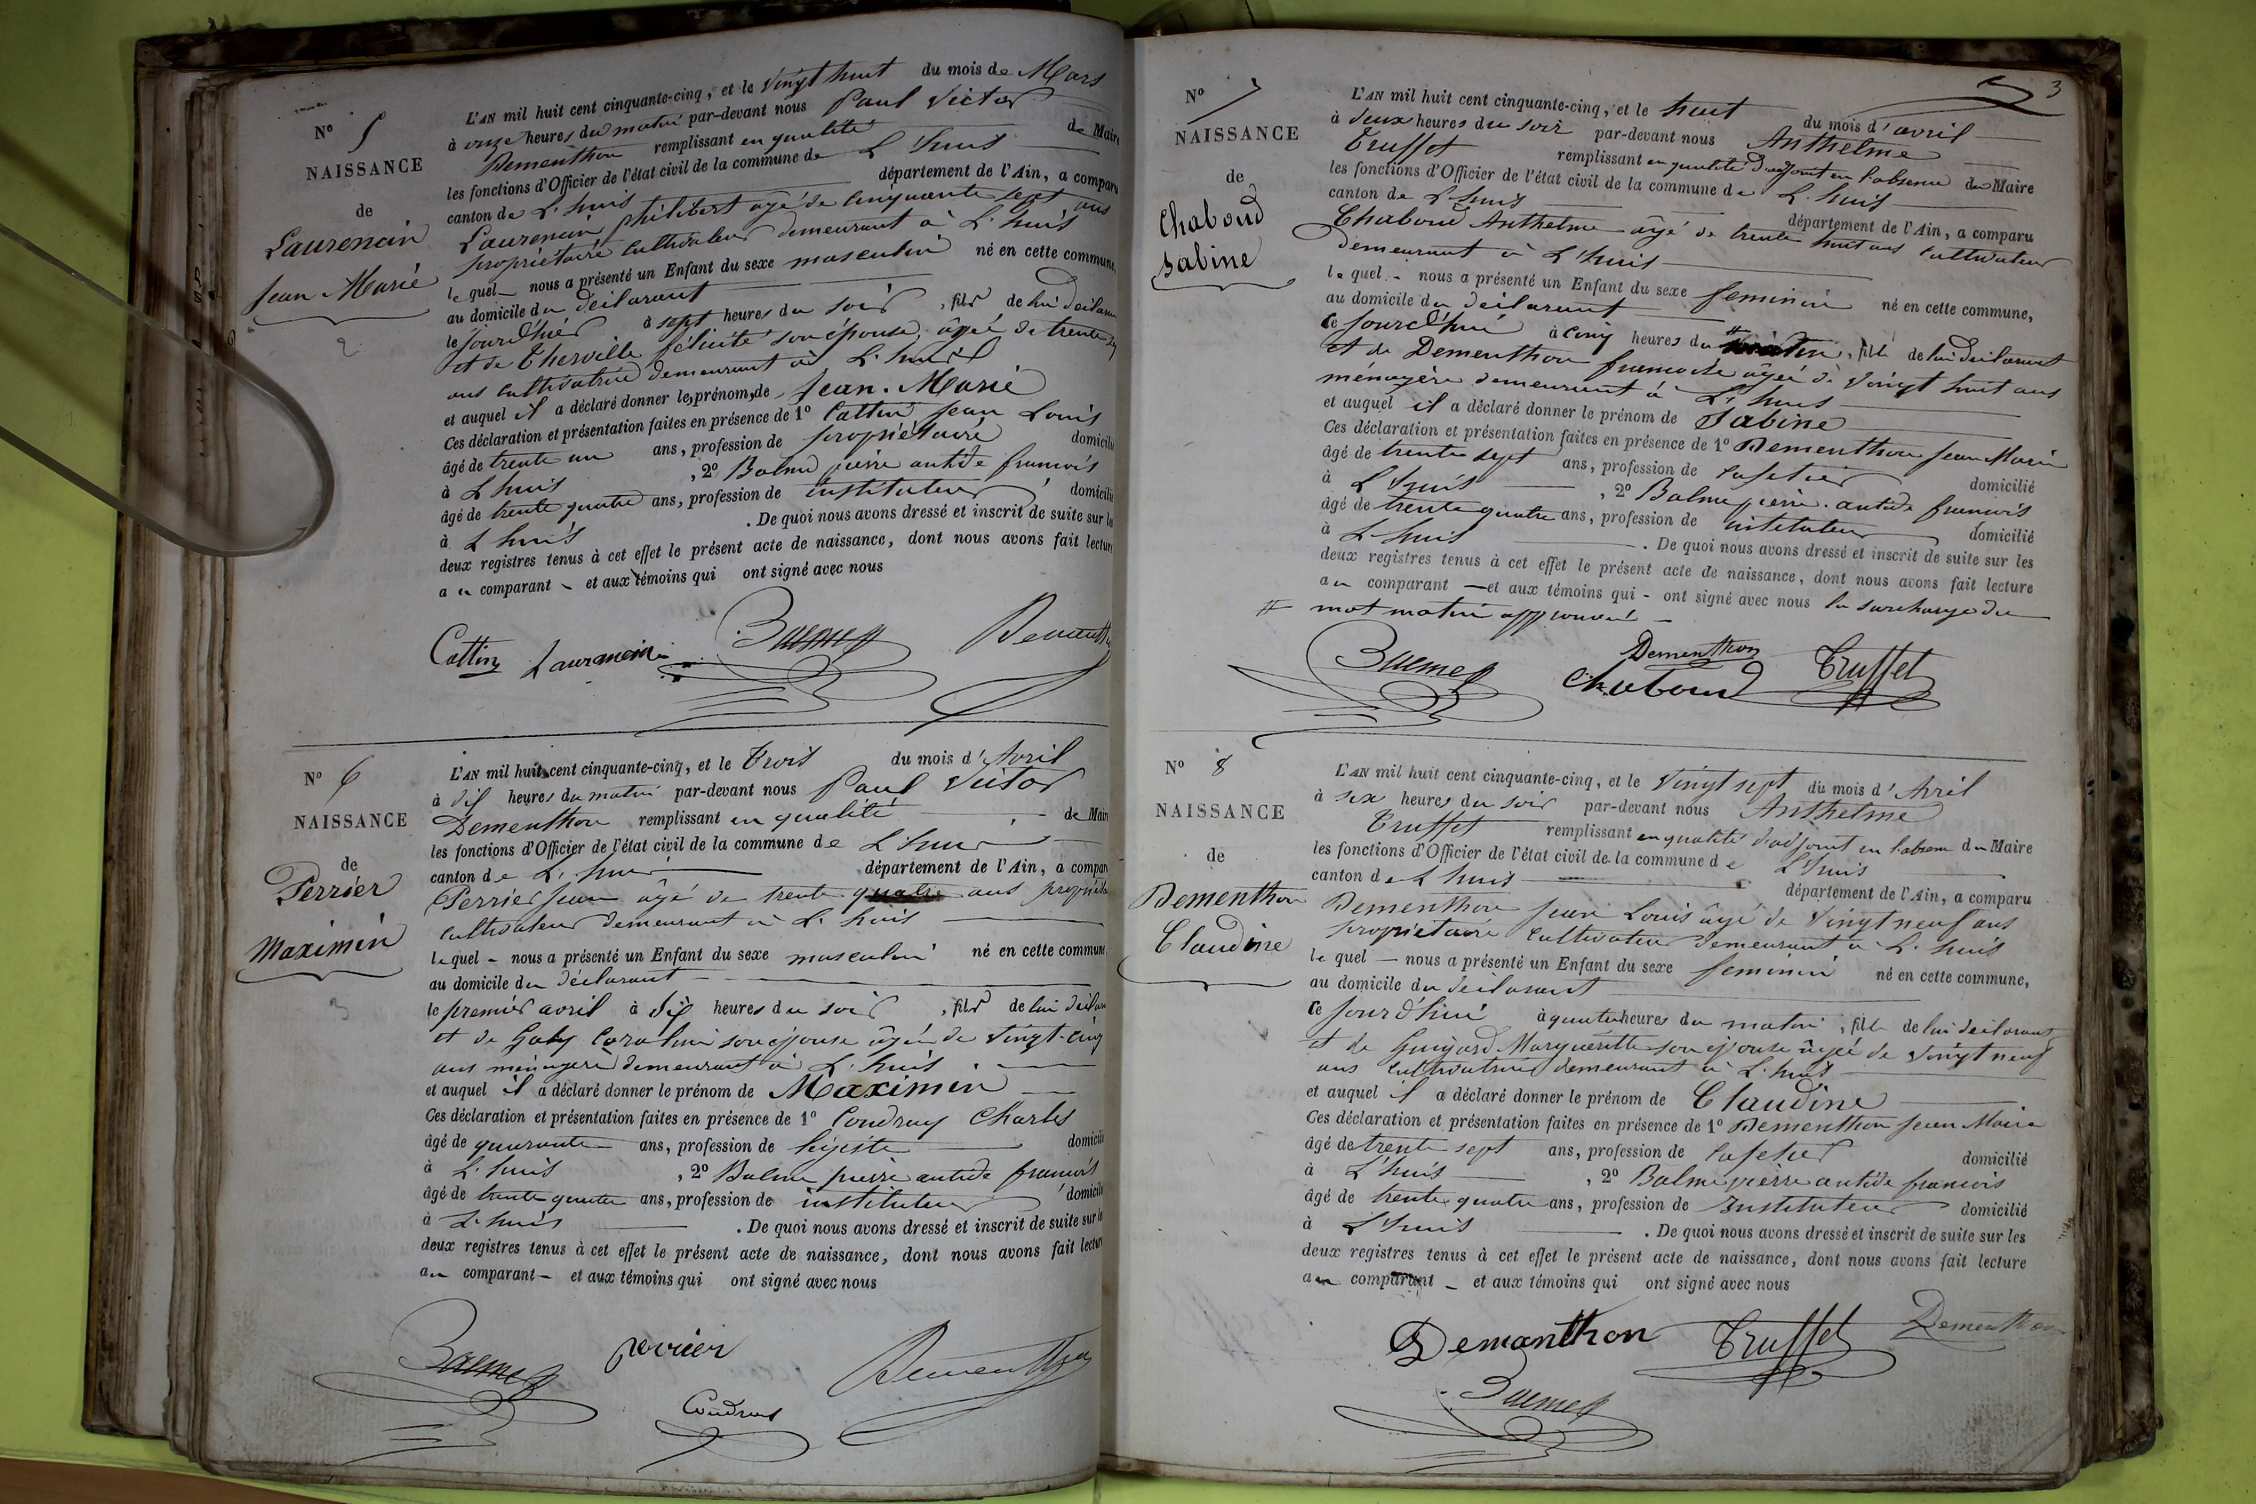 N° 5
NAISSANCE
de
Laurencin
Jean Marie
L'AN mil huit cent cinquante-cinq, et le vingt huit du mois de Mars
à onze heures du matin par-devant nous Paul Victor
Dementhon remplissant en qualité de Maire
les fonctions d'Officier de l'état civil de la commune de L'huis
canton de L'huis département de l'Ain, a comparu
Laurencin philibert âgé de cinquante sept ans
propriétaire cultivateur demeurant à L'huis
lequel nous a présenté un Enfant du sexe masculin né en cette commune,
au domicile du déclarant
le jour d'hier à sept heures du soir, fils de lui déclarant
et de Therville félicité son épouse âgée de trente
ans cultivatrice demeurant à L'huis
et auquel il a déclaré donner les prénoms de Jean-Marie
Ces déclaration et présentation faites en présence de 1° Cattin Jean Louis
âgé de trente un ans, profession de propriétaire domicilié
à L'huis, 2° Balme pierre antide francois
âgé de trente quatre ans, profession de instituteur domicilié
à L'huis. De quoi nous avons dressé et inscrit de suite sur les
deux registres tenus à cet effet le présent acte de naissance, dont nous avons fait lecture
au comparant et aux témoins qui ont signé avec nous
Cottin Laurencin Balme Dementhon
N° 6
NAISSANCE
de
Perrier
Maximin
L'AN mil huit cent cinquante-cinq, et le trois du mois d'Avril
à dix heures du matin par-devant nous Paul Victor
Dementhon remplissant en qualité de Maire
les fonctions d'Officier de l'état civil de la commune de L'huis
canton de L'huis département de l'Ain, a comparu
Perrier Jean âgé de trente quatre ans propriétaire
cultivateur demeurant à L'huis
lequel - nous a présenté un Enfant du sexe masculin né en cette commune
au domicile du déclarant
le premier avril à dix heures du soir, fils de lui déclarant
et de Gaby Caroline son épouse âgée de vingt-cinq
ans ménagère demeurant à L'huis
et auquel il a déclaré donner le prénom de Maximin
Ces déclaration et présentation faites en présence de 1° Coudray Charles
âgé de quarante ans, profession de légiste domicilié
à L'huis, 2° Balme pierre antide francois
âgé de trente quatre ans, profession de instituteur domicilié
à L'huis. De quoi nous avons dressé et inscrit de suite sur les
deux registres tenus à cet effet le présent acte de naissance, dont nous avons fait lecture
au comparant - et aux témoins qui ont signé avec nous
Balme perrier Dementhon
Coudray
3
N° 7
NAISSANCE
de
Chaboud
Sabine
L'AN mil huit cent cinquante-cinq, et le huit du mois d'avril
à deux heures du soir par-devant nous Anthelme
Truffet remplissant en qualité d'adjoint en l'absence du Maire
les fonctions d'Officier de l'état civil de la commune de L'huis
canton de L'huis département de l'Ain, a comparu
Chaboud Anthelme âgé de trente huit ans cultivateur
demeurant à L'huis
lequel - nous a présenté un Enfant du sexe feminin né en cette commune,
au domicile du déclarant
ce jourd'hui à cinq heures du # matin, fille de lui déclarant
et de Dementhon francoise âgée de vingt huit ans
ménagère demeurant à L'huis
et auquel il a déclaré donner le prénom de Sabine
Ces déclaration et présentation faites en présence de 1° Dementhon Jean Marie
âgé de trente sept ans, profession de cafetier domicilié
à L'huis, 2° Balme pierre antide francois
âgé de trente quatre ans, profession de instituteur domicilié
à L'huis. De quoi nous avons dressé et inscrit de suite sur les
deux registres tenus à cet effet le présent acte de naissance, dont nous avons fait lecture
au comparant - et aux témoins qui - ont signé avec nous la surcharge du
# mot matin approuvé -
Balme Dementhon Chaboud Truffet
N° 8
NAISSANCE
de
Dementhon
Claudine
L'AN mil huit cent cinquante-cinq, et le vingt sept du mois d'Avril
à six heures du soir par-devant nous Anthelme
Truffet remplissant en qualité d'adjoint en l'absence du Maire
les fonctions d'Officier de l'état civil de la commune de L'huis
canton de L'huis département de l'Ain, a comparu
Dementhon Jean Louis âgé de vingt neuf ans
propriétaire cultivateur demeurant à L'huis
lequel - nous a présenté un Enfant du sexe feminin né en cette commune,
au domicile du déclarant
ce jourd'hui à quatre heures du matin, fille de lui déclarant
et de Guigard Marguerite son épouse âgée de vingt neuf
ans cultivatrice demeurant à L'huis
et auquel il a déclaré donner le prénom de Claudine
Ces déclaration et présentation faites en présence de 1° Dementhon Jean Marie
âgé de trente sept ans, profession de cafetier domicilié
à L'huis, 2° Balme pierre antide francois
âgé de trente quatre ans, profession de Instituteur domicilié
à L'huis. De quoi nous avons dressé et inscrit de suite sur les
deux registres tenus à cet effet le présent acte de naissance, dont nous avons fait lecture
au comparant - et aux témoins qui ont signé avec nous
Demanthon Truffet Dementhon
Balme